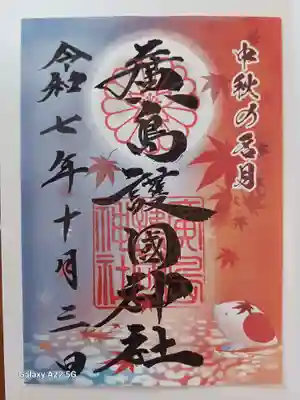 中秋の名月
廣島護國神社
令和七年十月三日
Galaxy A22 5G